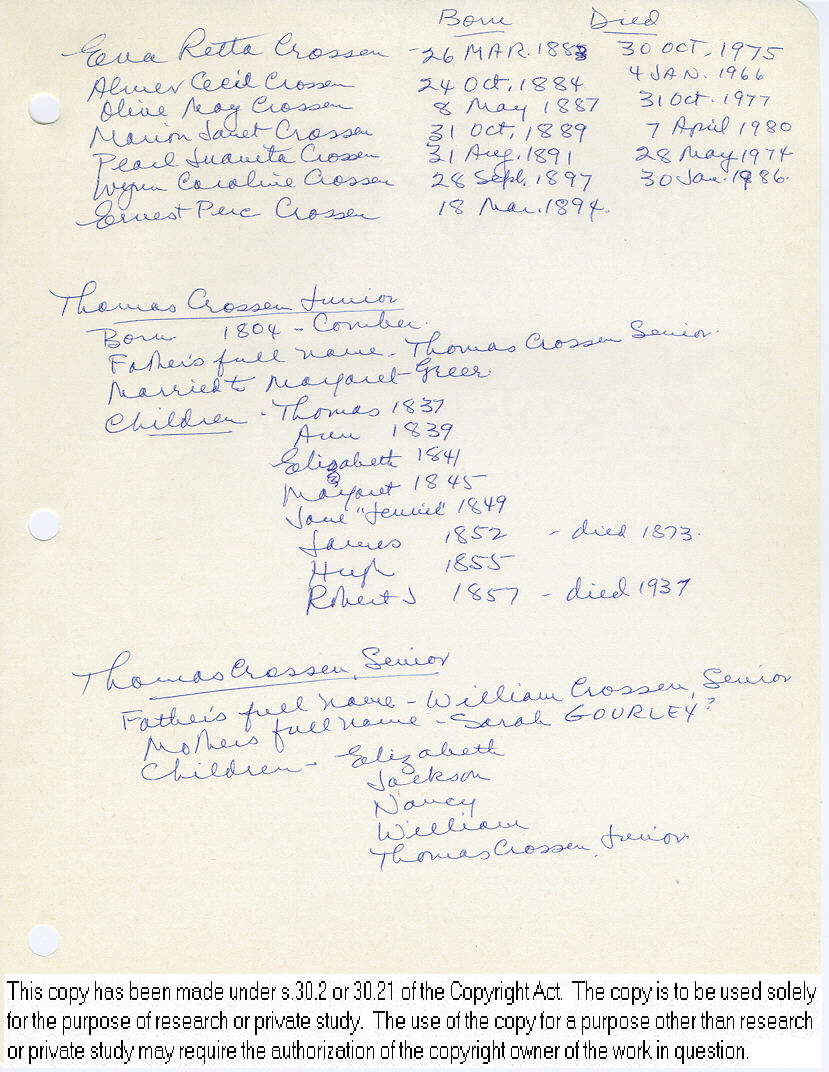 Born Died
Eva Retta Crossen - 26 MAR. 1883 30 OCT. 1975
Almer Cecil Crossen 24 Oct, 1884 4 JAN. 1966
Olive May Crossen 8 May 1887 31 Oct. 1977
Marion Janet Crossen 31 Oct, 1889 7 April 1980
Pearl Juanita Crossen 31 Aug, 1891 28 May 1974
Wynn Caroline Crossen 28 Sept, 1897 30 Jan. 1986.
Ernest Perc Crossen 18 Mar. 1894.
Thomas Crossen Junior
Born 1804 - Comber.
Father's full name - Thomas Crossen Senior.
Married to Margaret Greer.
Children - Thomas 1837
Ann 1839
Elizabeth 1841
Margaret 1845
Jane "Jennie" 1849
James 1852 - died 1873.
Hugh 1855
Robert J 1857 - died 1937
Thomas Crossen, Senior
Father's full name - William Crossen, Senior
Mother's full name - Sarah GOURLEY?
Children - Elizabeth
Jackson
Nancy
William
Thomas Crossen, Junior.
This copy has been made under s.30.2 or 30.21 of the Copyright Act. The copy is to be used solely
for the purpose of research or private study. The use of the copy for a purpose other than research
or private study may require the authorization of the copyright owner of the work in question.